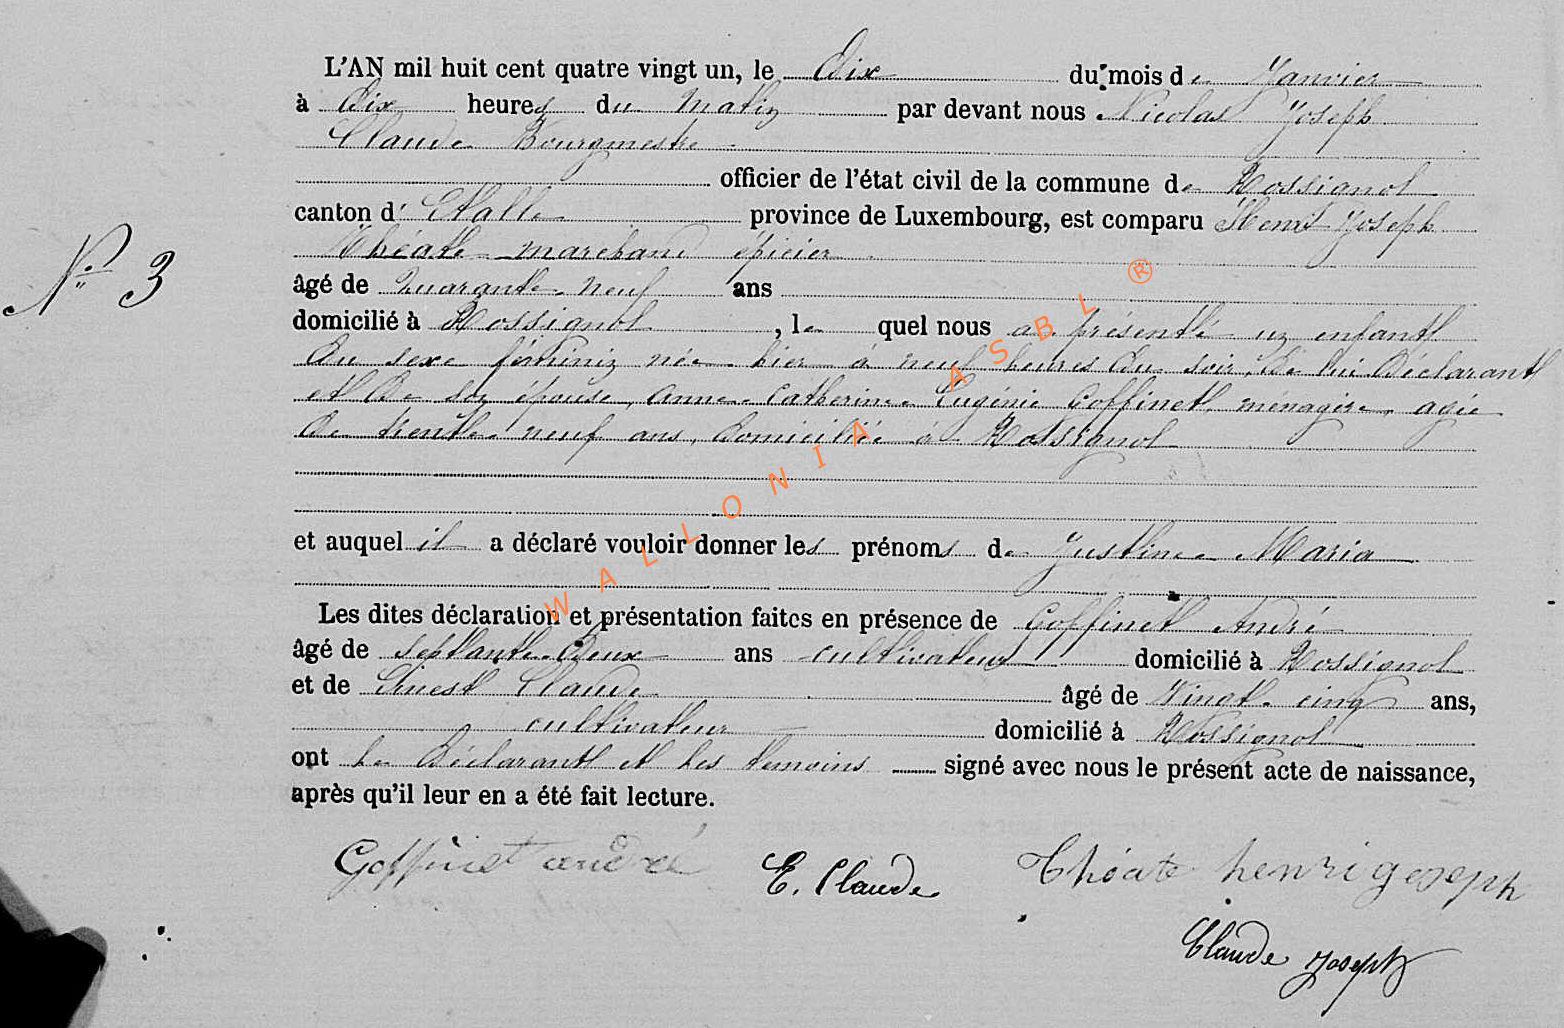 L'AN mil huit cent quatre vingt un, le Dix du mois de Janvier
à Dix heures du Matin par devant nous Nicolas Joseph
Claude Bourgmestre
officier de l'état civil de la commune de Rossignol
canton d' Etalle province de Luxembourg, est comparu Henri Joseph
Théate marchand épicier
N° 3
âgé de Quarante neuf ans
domicilié à Rossignol, le quel nous a présenté un enfant
du sexe féminin née hier à neuf heures du soir, de lui Déclarant
et de son épouse, Anne Catherine Eugénie Goffinet, ménagère, agée
de trente neuf ans, domiciliée à Rossignol
et auquel il a déclaré vouloir donner les prénoms de Justine Maria
Les dites déclaration et présentation faites en présence de Goffinet André
âgé de septante-Deux ans cultivateur domicilié à Rossignol
et de Ernest Claude âgé de Vingt-cinq ans,
cultivateur domicilié à Rossignol
ont le Déclarant et les temoins signé avec nous le présent acte de naissance,
après qu'il leur en a été fait lecture.
Goffinet andré E. Claude Théate henri joseph
Claude Joseph
WALLONIA ASBL ®